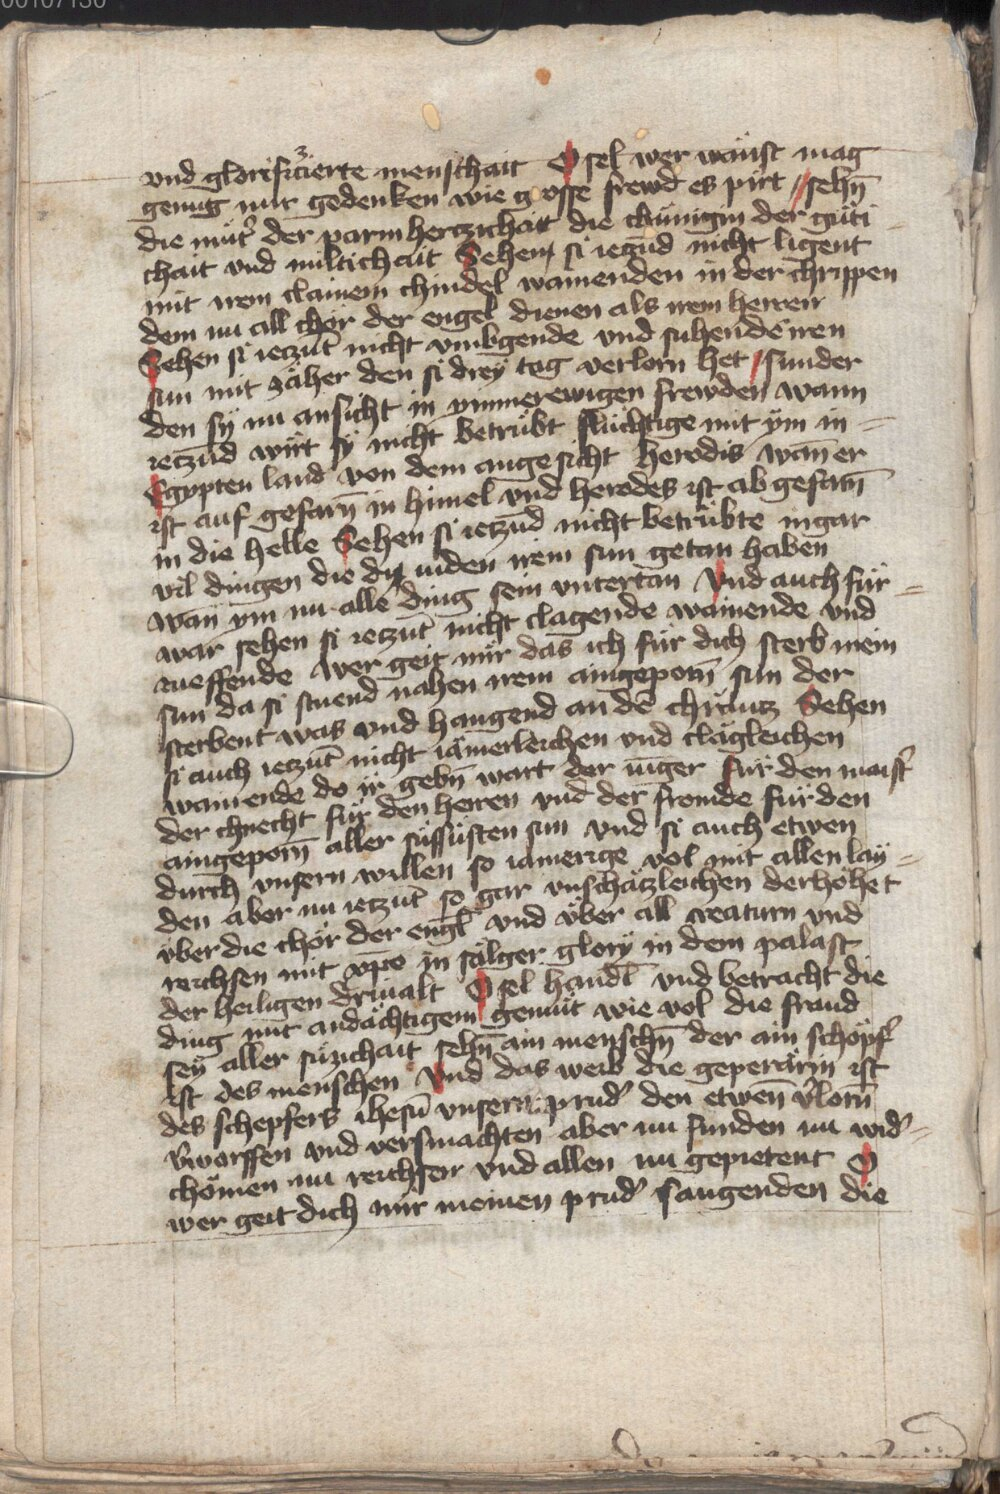 00107130
vnd glorifizierte menschait O sel wer wänst mag
genug nur gedenken wie grosse frewd es pirt sehn̄
die mut᷑ der parmherczichait die chünigin der güti
chait vnd miltichait Sehen si ieczud nicht ligent
mit irem clainem chindel wainenden in der chrippen
dem nu all chör der engel dienen als irem herren
Sehen si ieczut nicht vmbgende vnd suhende iren
sun mit zäher den si drey tag verlorn het sunder
den sy nu ansicht in ymmerewigen frewden wann
ieczud wirt sy nicht betrübt flüchtige mit ym in
Egypten land von dem angesicht herodis wan̄ er
ist auf gefarn̄ in himel vnd herodes ist ab gefarn̄
in die helle Sehen si ieczud nicht betrübte ingar
vil dingen die dy iuden irem sun getan haben
wan̄ ym nu alle ding sein vntertan Vnd auch für
war sehen si ieczut nicht clagende wainende vnd
rueffende wer geit mir das ich für dich sterb mein
sun da si stuend nahen irem aingeporn̄ sun der
sterbent was vnd hangend an dē chräucz Sehen
si auch ieczut nicht iämerleichen vnd clägleichen
wainende do ir gebn̄ wart der iūger für den maist᷑
der chnecht für den herren vnd der fromde für den
aingeporn̄ aller süssüsten sun vnd si auch etwen
durch vnsern willen so iamerige vol mit allen lay
den aber nu ieczut so gar vnschäczleichen derhöhet
vber die chör der engl̄ vnd vber all creaturn vnd
reichsen mit xp̄o in sälger glory in dem palast
der heiligen driualt O sel handl̄ vnd betracht die
ding mit andächtigem gemüt wie vol die fraud
sey aller süzichait sehn̄ ain menschn̄ der ain schöpf᷑
ist des menschen Vnd das weib die gepererin ist
des schepfers ihesū vnsern prud᷑ den etwen̄ v᷑lorn̄
v᷑worffen vnd versmachten aber nu funden nu wid᷑
chömen nu reichsen vnd allen nu gepietent O
wer geit dich mir meinen prud᷑ saugenden die